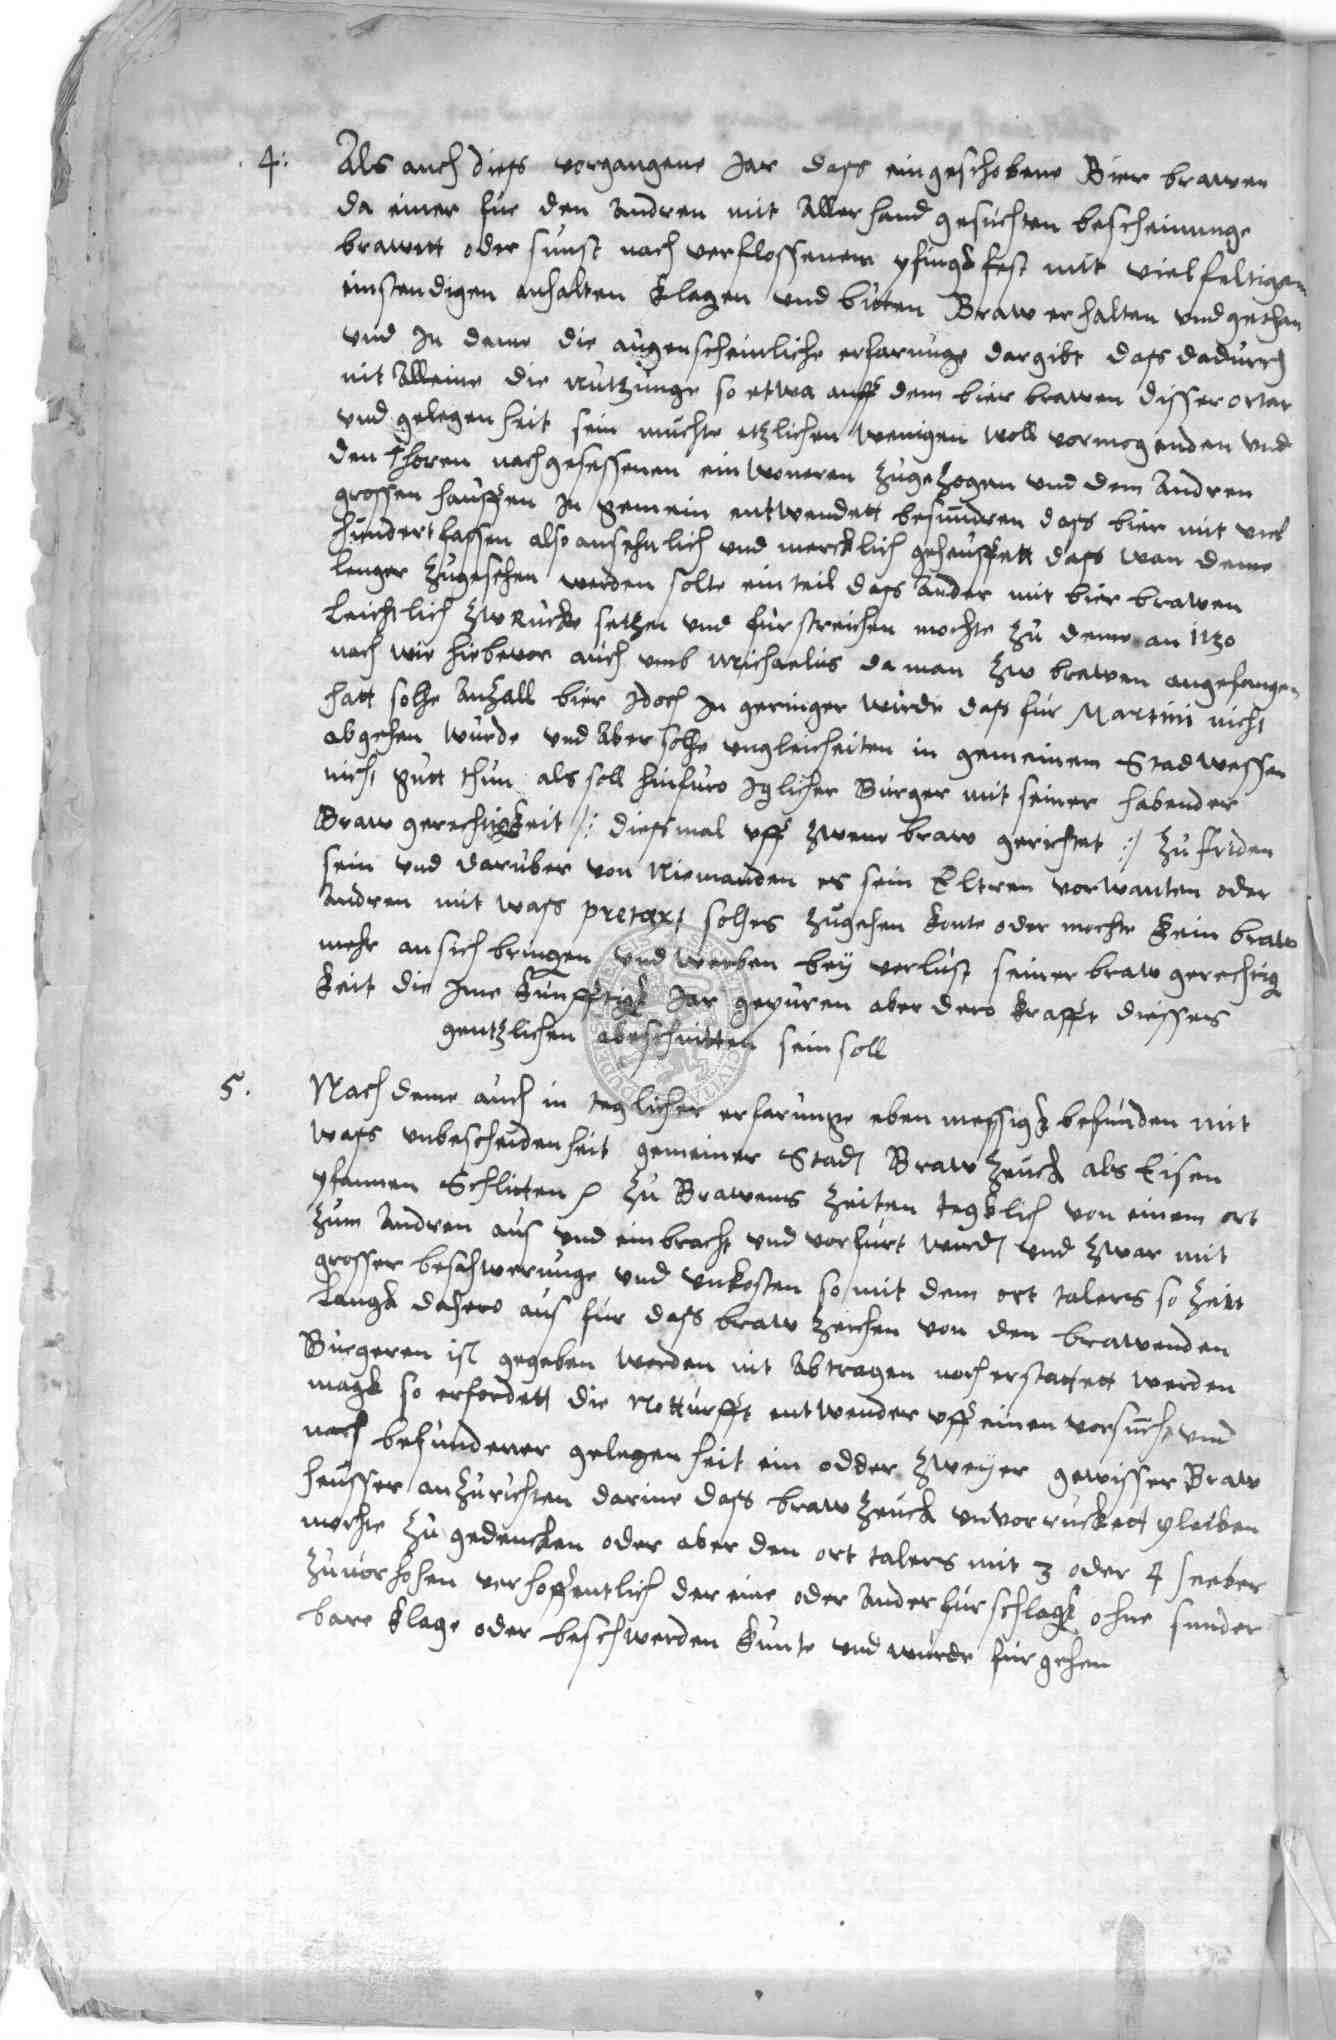 4. Als auch diess vorgangene Jar dass eingeschobene Bier brawen
da einer fur den Andren mit Allerhand gesuchten bescheinunge
brawett oder sunst nach verflossenem pfingstfest mit vielfeltigem
einstendigen anhalten klagen und bitten Braw erhalten und gethan
und In deme die augenscheinliche erfarunge dargibt dass dadurch
nit Alleine die nutzunge so etwa auff dem bier brawen disser ortar
und gelegenheit sein muchte etzlichen wenigen woll vormogenden und
den thoren nachgesessenen einwoneren zugezogen und dem Andren
grossen hauffen In gemein entwendett besundren dass bier mit viel
hundert fassen also ansehnlich und mercklich geheuffett dass wan deme
lenger zugesehen werden solte ein teil dass Ander mit bier brawen
leichtlich zwrucke setzen und furstreichen mochte zu deme an itzo
noch wie hiebevor auch umb Michaelis da man zw brawen angefangen
hatt solhe Anzall bier Idoch In geringer wirde dass fur Martini nicht
abgehen wurde und Aber solhe ungleicheiten in gemeinem Stadwessen
nicht gutt thun als soll hinfuro Iglicher Burger mit seiner habender
Braw gerechtigkeit /: diessmal uff zwene braw gerichtet :/ zu friden
sein und daruber von Niemanden es sein Eltren vorwanten oder
Andren mit wass pretext solhes zugehen konte oder mochte kein braw
mehr an sich bringen und werben bey verlust seiner braw gerechtig
keit die Ime kunfftigk Jar gepuren aber dero krafft diessers
gentzlichen abeschnitten sein soll
5. Nach deme auch in teglicher erfarunge ebenmessigk befunden mit
wass unbescheidenheit gemeiner Stadt Brawzeuck als Eisen
pfannen Schlitten zu Brawens zeiten tegklich von einem ort
zum Andren aus und ein bracht und vorfurt wird und zwar mit
grosser beschwerunge und unkosten so mit dem ort talers so zeitt
langk dahero aus fur dass braw zeichen von den brawenden
Burgeren ist gegeben werden nit Abtragen noch erstattett werden
magk so erfordett die Notturfft entwender uff einen vorsuch und
nach befundener gelegenheit ein odder zweyer gewisser Braw
heusser anzurichten darine dass brawzeuck unvorruckett pleiben
mochte zu gedencken oder aber den ort talers mit 3 oder 4
zuvorhohen verhoffentlich der eine oder Ander furschlagk ohne sunder
bare klage oder beschwerden kunte und wurde furgehen